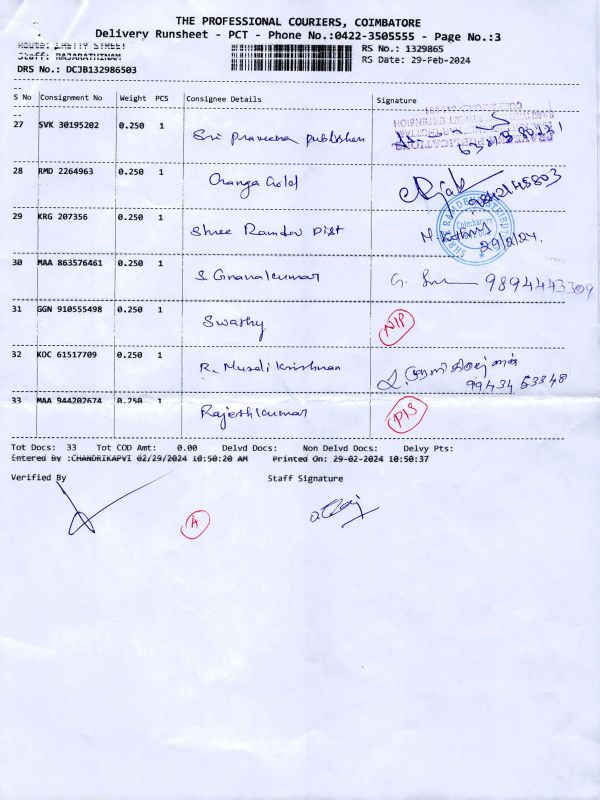 THE PROFESSIONAL COURIERS, COIMBATORE
Delivery Runsheet - PCT - Phone No.:0422-3505555 - Page No.:3
Route: CHETTY STREET
RS No.: 1329865
Staff: RAJARATHINAM
RS Date: 29-Feb-2024
DRS No.: DCJB132986503
S No Consignment No Weight PCS Consignee Details Signature
27 SVK 30195202 0.250 1 Sri Praveena Publishers
28 RMD 2264963 0.250 1 Ganga Gold 9842145803
29 KRG 207356 0.250 1 Shree Ramdev Dist 29/2/24.
30 MAA 863576461 0.250 1 S Gnanakumar 9894443309
31 GGN 910555498 0.250 1 Swathy NIP
32 KOC 61517709 0.250 1 R. Murali Krishnan 99434 53348
33 MAA 944202674 0.250 1 Rajeshkumar PIS
Tot Docs: 33 Tot COD Amt: 0.00 Delvd Docs: Non Delvd Docs: Delvy Pts:
Entered By :CHANDRIKAPVI 02/29/2024 10:50:20 AM Printed On: 29-02-2024 10:50:37
Verified By Staff Signature
A